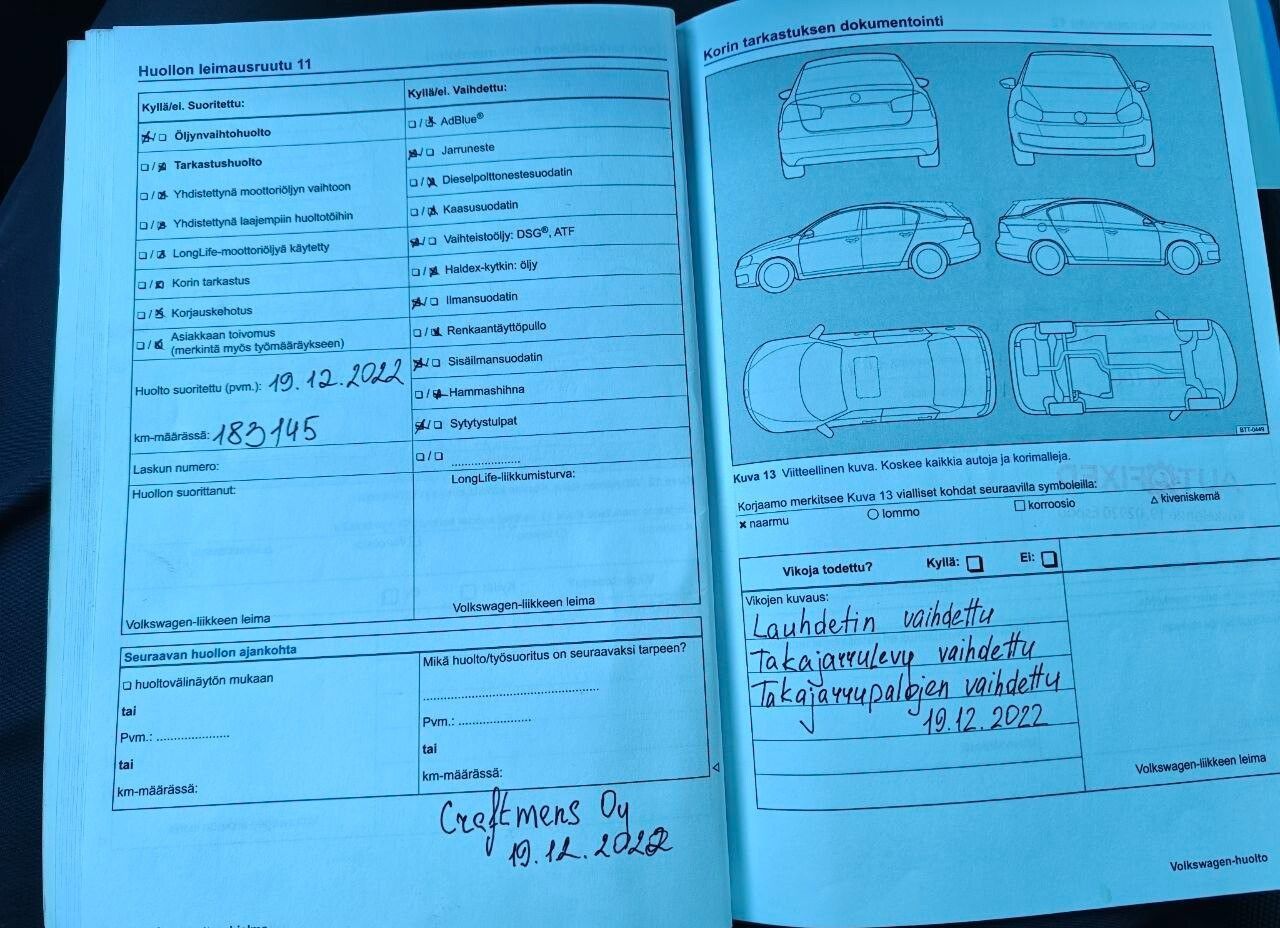 Huollon leimausruutu 11
Kyllä/ei. Suoritettu:
☒/☐ Öljynvaihtohuolto
☐/☒ Tarkastushuolto
☐/☒ Yhdistettynä moottoriöljyn vaihtoon
☐/☒ Yhdistettynä laajempiin huoltotöihin
☐/☒ LongLife-moottoriöljyä käytetty
☐/☒ Korin tarkastus
☐/☒ Korjauskehotus
☐/☒ Asiakkaan toivomus
(merkintä myös työmääräykseen)
Huolto suoritettu (pvm.): 19.12.2022
km-määrässä: 183145
Laskun numero:
Huollon suorittanut:
Volkswagen-liikkeen leima
Kyllä/ei. Vaihdettu:
☐/☒ AdBlue®
☒/☐ Jarruneste
☐/☒ Dieselpolttonestesuodatin
☐/☒ Kaasusuodatin
☒/☐ Vaihteistoöljy: DSG®, ATF
☐/☒ Haldex-kytkin: öljy
☒/☐ Ilmansuodatin
☐/☒ Renkaantäyttöpullo
☒/☐ Sisäilmansuodatin
☐/☒ Hammashihna
☒/☐ Sytytystulpat
☐/☐ ......................
LongLife-liikkumisturva:
Volkswagen-liikkeen leima
Seuraavan huollon ajankohta
☐ huoltovälinäytön mukaan
tai
Pvm.: ......................
tai
km-määrässä:
Mikä huolto/työsuoritus on seuraavaksi tarpeen?
......................................................
Pvm.: ......................
tai
km-määrässä:
Craftmens Oy
19.12.2022
Korin tarkastuksen dokumentointi
BTT-0449
Kuva 13 Viitteellinen kuva. Koskee kaikkia autoja ja korimalleja.
Korjaamo merkitsee Kuva 13 vialliset kohdat seuraavilla symboleilla:
× naarmu ○ lommo ☐ korroosio △ kiveniskemä
Vikoja todettu? Kyllä: ☐ Ei: ☐
Vikojen kuvaus:
Lauhdetin vaihdettu
Takajarrulevy vaihdettu
Takajarrupalojen vaihdettu
19.12.2022
Volkswagen-liikkeen leima
Volkswagen-huolto